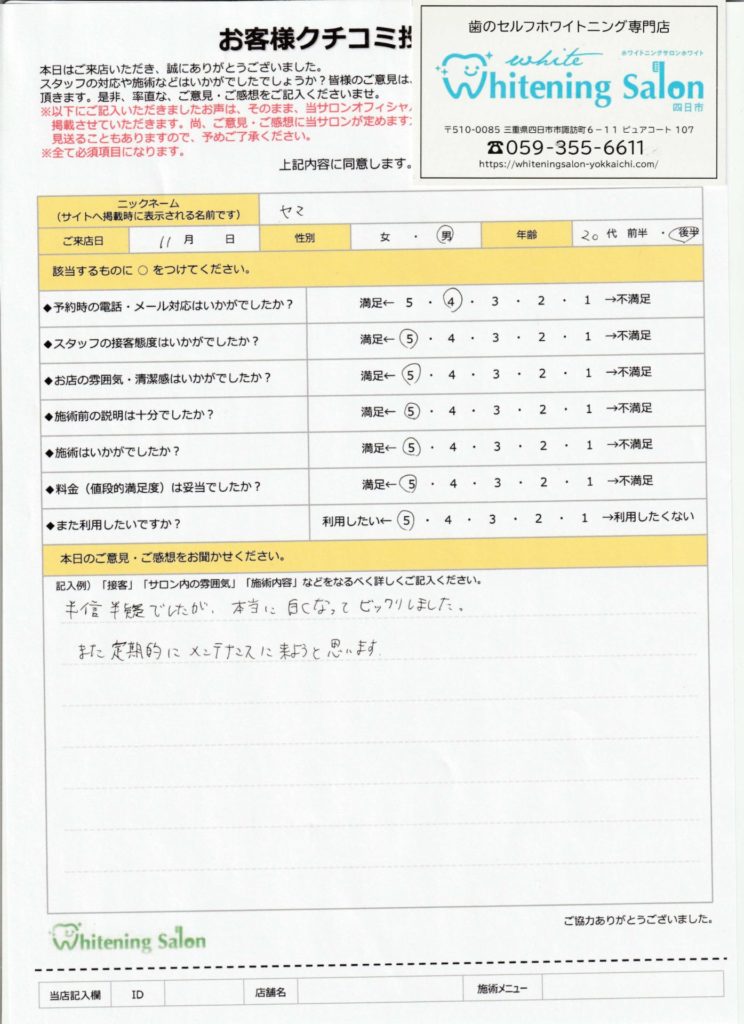 お客様クチコミ投
歯のセルフホワイトニング専門店
white
ホワイトニングサロンホワイト
Whitening Salon
四日市
〒510-0085 三重県四日市市諏訪町6-11 ピュアコート 107
☎059-355-6611
https://whiteningsalon-yokkaichi.com/
本日はご来店いただき、誠にありがとうございました。
スタッフの対応や施術などはいかがでしたでしょうか?皆様のご意見は、
頂きます。是非、率直な、ご意見・ご感想をご記入くださいませ。
※以下にご記入いただきましたお声は、そのまま、当サロンオフィシャル
掲載させていただきます。尚、ご意見・ご感想に当サロンが定めます
見送ることもありますので、予めご了承ください。
※全て必須項目になります。
上記内容に同意します。
ニックネーム
(サイトへ掲載時に表示される名前です)
ヤマ
ご来店日 11 月 日 性別 女 ・ 男 年齢 20 代 前半 ・ 後半
該当するものに ○ をつけてください。
◆予約時の電話・メール対応はいかがでしたか? 満足← 5 ・ 4 ・ 3 ・ 2 ・ 1 →不満足
◆スタッフの接客態度はいかがでしたか? 満足← 5 ・ 4 ・ 3 ・ 2 ・ 1 →不満足
◆お店の雰囲気・清潔感はいかがでしたか? 満足← 5 ・ 4 ・ 3 ・ 2 ・ 1 →不満足
◆施術前の説明は十分でしたか? 満足← 5 ・ 4 ・ 3 ・ 2 ・ 1 →不満足
◆施術はいかがでしたか? 満足← 5 ・ 4 ・ 3 ・ 2 ・ 1 →不満足
◆料金(値段的満足度)は妥当でしたか? 満足← 5 ・ 4 ・ 3 ・ 2 ・ 1 →不満足
◆また利用したいですか? 利用したい← 5 ・ 4 ・ 3 ・ 2 ・ 1 →利用したくない
本日のご意見・ご感想をお聞かせください。
記入例)「接客」「サロン内の雰囲気」「施術内容」などをなるべく詳しくご記入ください。
半信半疑でしたが、本当に白くなってビックリしました。
また定期的にメンテナンスに来ようと思います。
ご協力ありがとうございました。
Whitening Salon
当店記入欄 ID 店舗名 施術メニュー